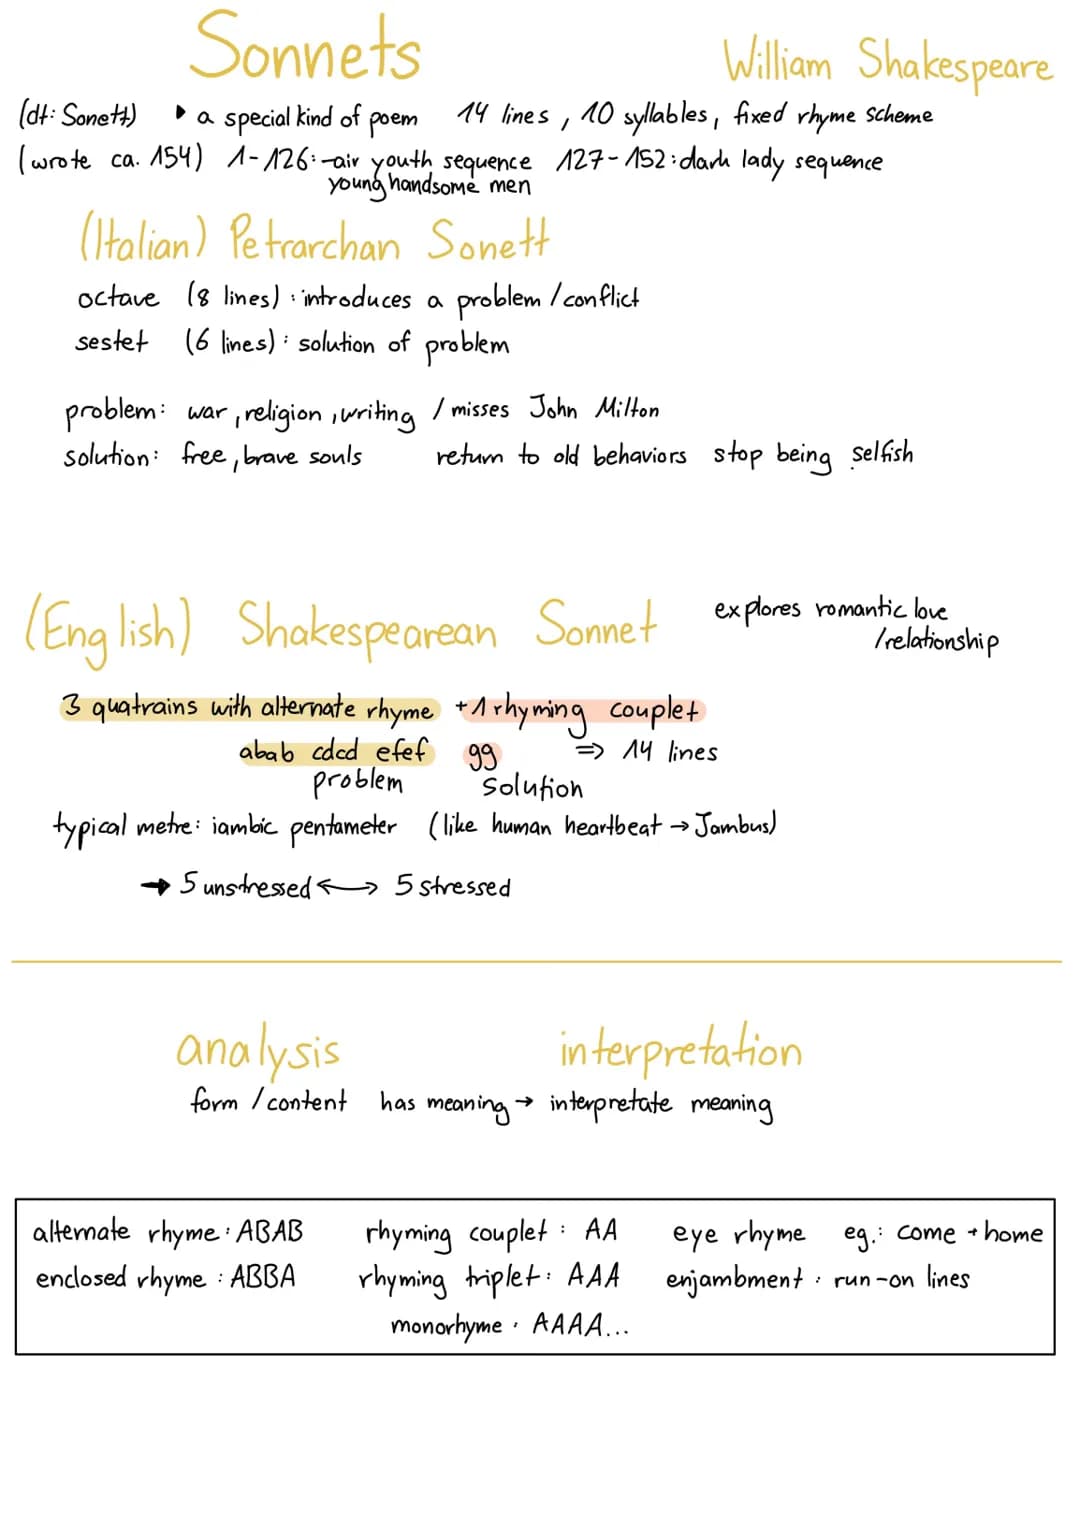 Sonnets William Shakespeare
(dt: Sonett) ▸ a special kind of poem 14 lines, 10 syllables, fixed rhyme scheme
(wrote ca. 154) 1-126: -air youth sequence 127-152: dark lady sequence
young handsome men
(Italian) Petrarchan Sonett
octave (8 lines): introduces a problem / conflict
sestet (6 lines): solution of problem
problem: war, religion, writing / misses John Milton
solution: free, brave souls return to old behaviors stop being selfish
(English) Shakespearean Sonnet explores romantic love
/relationship
3 quatrains with alternate rhyme + 1 rhyming couplet
abab cdcd efef gg ⇒ 14 lines
problem solution
typical metre: iambic pentameter (like human heartbeat → Jambus)
→ 5 unstressed ↔ 5 stressed
analysis interpretation
form / content has meaning → interpretate meaning
alternate rhyme: ABAB rhyming couplet: AA eye rhyme eg.: come + home
enclosed rhyme: ABBA rhyming triplet: AAA enjambment: run-on lines
monorhyme: AAAA...